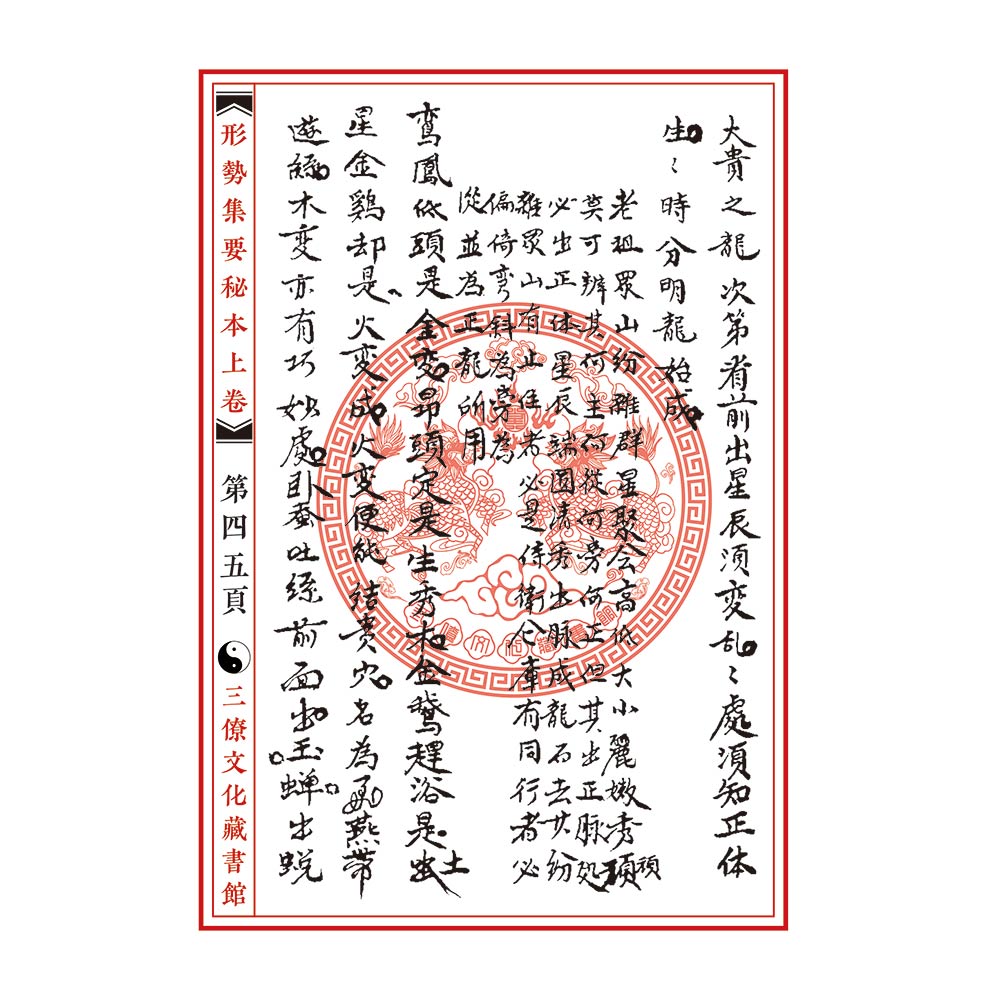 大貴之龍次第看前出星辰須变乱〻處須知正体
生〻時分明龍始成
老祖眾山纷雜群星聚会高低大小麗嫩秀頑
莫可辨其何主何從何旁何正但其出正脉処
必出正体星辰端圆清秀出脉成龍而去其纷
雜眾山有止住者必是侍衛仓庫有同行者必
偏倚弯斜為旁為
從並為正龍所用
鸾鳳低頭是金变昂頭定是生秀木金鵝趕浴是土
星金鷄却是火变成火变便能結貴穴名為飛燕帶
遊絲木变亦有巧妙處卧蚕吐絲前面出玉蝉出蜕
形勢集要秘本上卷
第四五頁
三僚文化藏書館